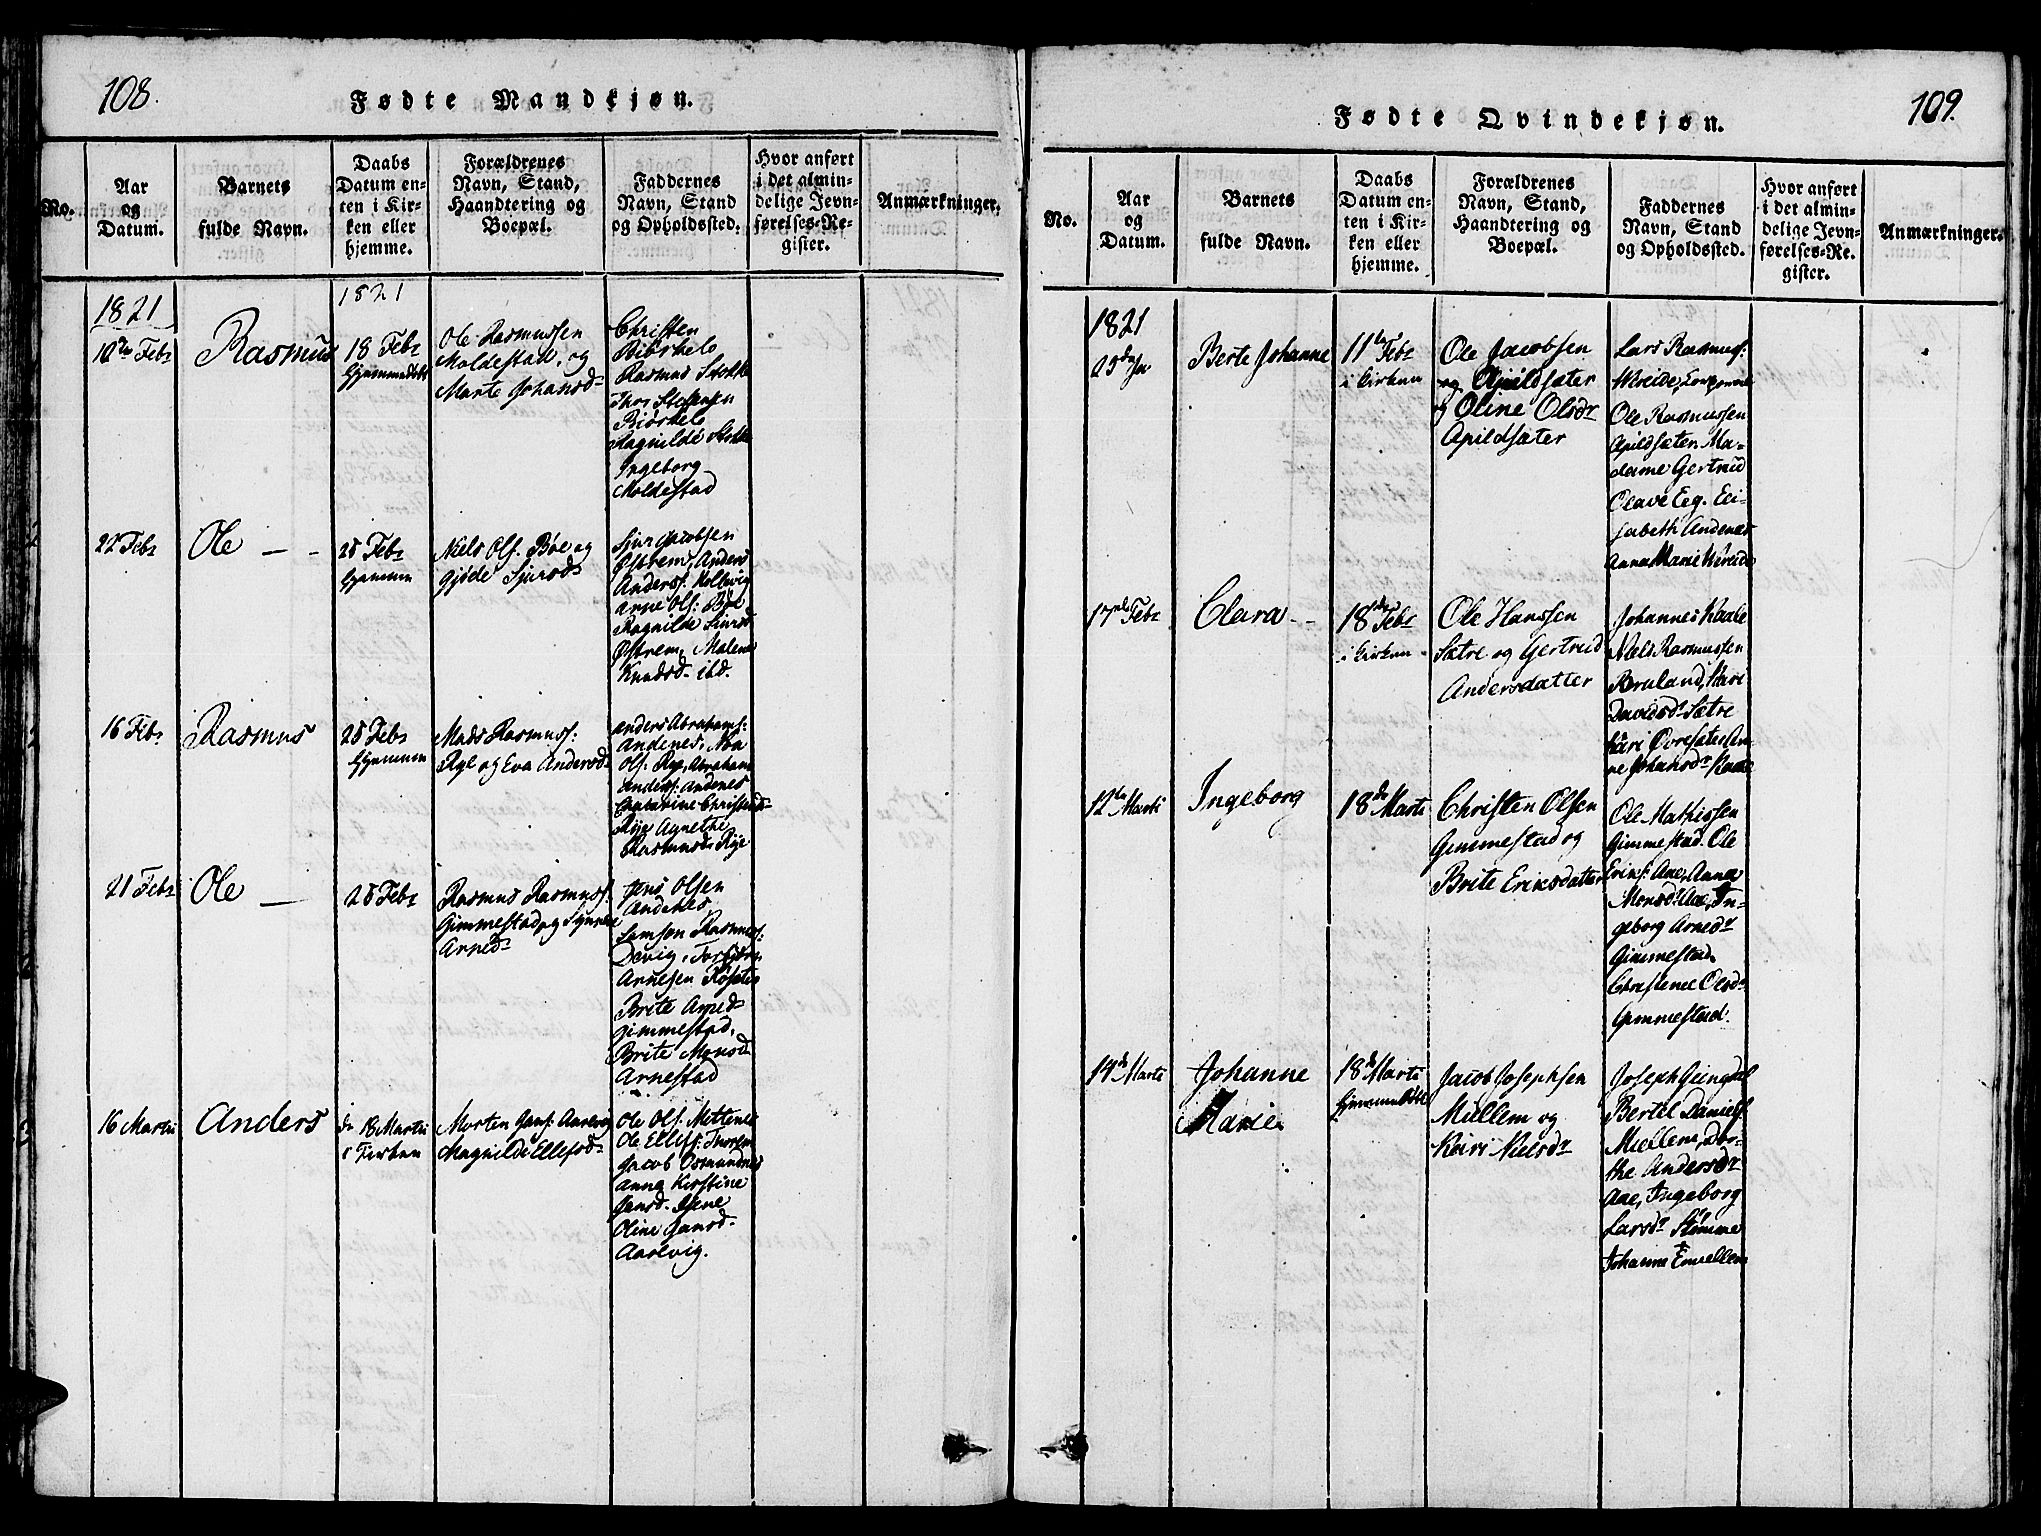 108.
Fødte Mandkjøn.
No.
Aar
og
Datum.
Barnets
fulde Navn.
Daabs
Datum en-
ten i Kir-
ken eller
hjemme.
Forældrenes
Navn, Stand,
Haandtering og
Boepæl.
Faddernes
Navn, Stand
og Opholdssted.
Hvor anført
i det almin-
delige Jevn-
førelses-Re-
gister.
Anmærkninger.
1821
10de Febr
Rasmus
1821
18 Febr
Hjemmedøbt
Ole Rasmussen
Moldestad, og
Marte Johansd
Christen
Biørkelo
Rasmus Stokke
Thor Steffensen
Biørkelo
Ragnilde Stokke
Ingeborg
Moldestad
22 Febr
Ole
25 Febr
Hjemmen
Niels Ols. Bøe og
Gjøde Sjursd
Sjur Jacobsen
Østrem, Anders
Anderss. Hollevig
Arne Ols: Bøe
Ragnilde Siursd
Østrem, Malene
Knudsd. ibd.
16 Febr
Rasmus
25 Febr
Hjemmen
Mads Rasmuss:
Rye og Eva Andersd
Anders Abrahams:
Andenes,
Ols: Rye, Abraham
Anderss: Andenes
Chatarine Christensd
Rye Agnethe
Rasmusd. Rye
21 Febr
Ole
25 Febr
Rasmus Rasmuss:
Gimmestad og Synneve
Arnedr
Jens Olsen
Andenes
Samson Rasmus:
Devig, Torbiørn
Arnesen
Brite Arned
Gimmestad,
Brite Monsd
Arnestad
16 Martii
Anders
d 18 Martii
i Kirken
Morten Jans: Aarevig
Magnilde Ellefsd
Ole Ols: Mettenes
Ole Ellefs:
Jacob Osmundnes
Anne Kirstine
Jansd.
Oline Jansd.
Aarevig.
109.
Fødte Qvindekjøn.
No.
Aar
og
Datum.
Barnets
fulde Navn.
Daabs
Datum en-
ten i Kir-
ken eller
hjemme.
Forældrenes
Navn, Stand,
Haandtering og
Boepæl.
Faddernes
Navn, Stand
og Opholdssted.
Hvor anført
i det almin-
delige Jevn-
førelses-Re-
gister.
Anmærkninger.
1821
Berte Johanne
11te Febr
i Kirken
Ole Jacobsen
og Apildsæter
og Oline Olsdr
Apildsæter
Lars Rasmus:
Wereide,
Ole Rasmussen
Apildsæter, Ma-
dame Gertrud
Olave Eeg. Eli-
sabeth Andenes
Anne Marie Wereide
17de Febr
Clara
18de Febr
i Kirken
Ole Hanssen
Sætre og Gertrud
Andersdatter
Johannes Raade
Niels Rasmussen
Røruland, Kari
Davidsd. Sætre
Kari Øvresæter An-
ne Johansdr
12te Marti
Ingeborg
18de Marti
Christen Olsen
Gimmestad og
Brite Eriksdatter
Ole Mathissen
Gimmestad. Ole
Eriks: Aae, Anna
Monsdr Aae, In-
geborg Arnesdr
Gimmestad.
Christence Olsdr
Gimmestad.
14de Marti
Johanne
Marie
18de Marti
Hjemmedøbt
Jacob Josephsen
Mullem og
Kari Nielsdr
Joseph
Bertel Daniels:
Mullem, Dor-
the Andersdr
Aae, Ingeborg
Larsdr Stømme
Johanne